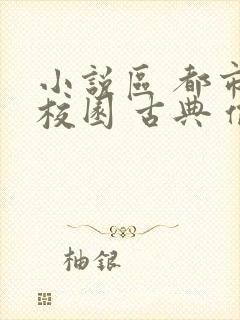 小說區 都市
校園 古典
柚銀